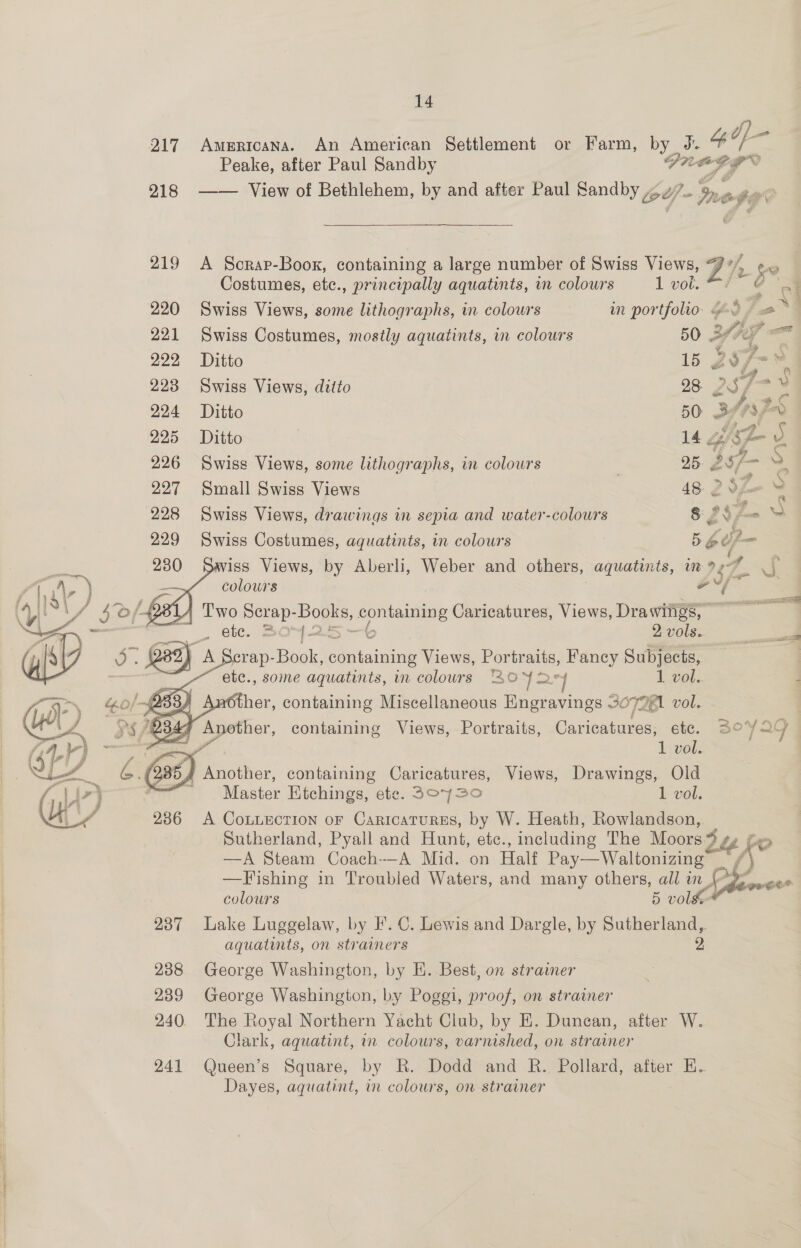 14
217 Americana. An American Settlement or Farm, by J.
Peake, after Paul Sandby
218 —— View of Bethlehem, by and after Paul Sandby
219 A Scrap-Book, containing a large number of Swiss Views,
Costumes, etc., principally aquatints, in colours 1 vol.
220 Swiss Views, some lithographs, in colours in portfolio
221 Swiss Costumes, mostly aquatints, in colours 50
222 Ditto 15
223 Swiss Views, ditto 28
224 Ditto 50
225 Ditto 14
226 Swiss Views, some lithographs, in colours 25
227 Small Swiss Views 48
228 Swiss Views, drawings in sepia and water-colours 8
229 Swiss Costumes, aquatints, in colours 5
230 Swiss Views, by Aberli, Weber and others, aquatints, in
colours
231 Two Scrap-Books, containing Caricatures, Views, Drawings,
etc. 30425-6 2 vols.
232 A Scrap-Book, containing Views, Portraits, Fancy Subjects,
etc., some aquatints, in colours 30427 1 vol.
233 Another, containing Miscellaneous Engravings 1 vol.
234 Another, containing Views, Portraits, Caricatures, etc. 30429
1 vol.
235 Another, containing Caricatures, Views, Drawings, Old
Master Etchings, etc. 30430 1 vol.
236 A Collection of Caricatures, by W. Heath, Rowlandson,
Sutherland, Pyall and Hunt, etc., including The Moors
—A Steam Coach—A Mid. on Half Pay—Waltonizing
—Fishing in Troubled Waters, and many others, all in
colours 5 vols.
237 Lake Luggelaw, by F. C. Lewis and Dargle, by Sutherland,
aquatints, on strainers 2
238 George Washington, by E. Best, on strainer
239 George Washington, by Poggi, proof, on strainer
240 The Royal Northern Yacht Club, by E. Duncan, after W.
Clark, aquatint, in colours, varnished, on strainer
241 Queen's Square, by R. Dodd and R. Pollard, after E.
Dayes, aquatint, in colours, on strainer